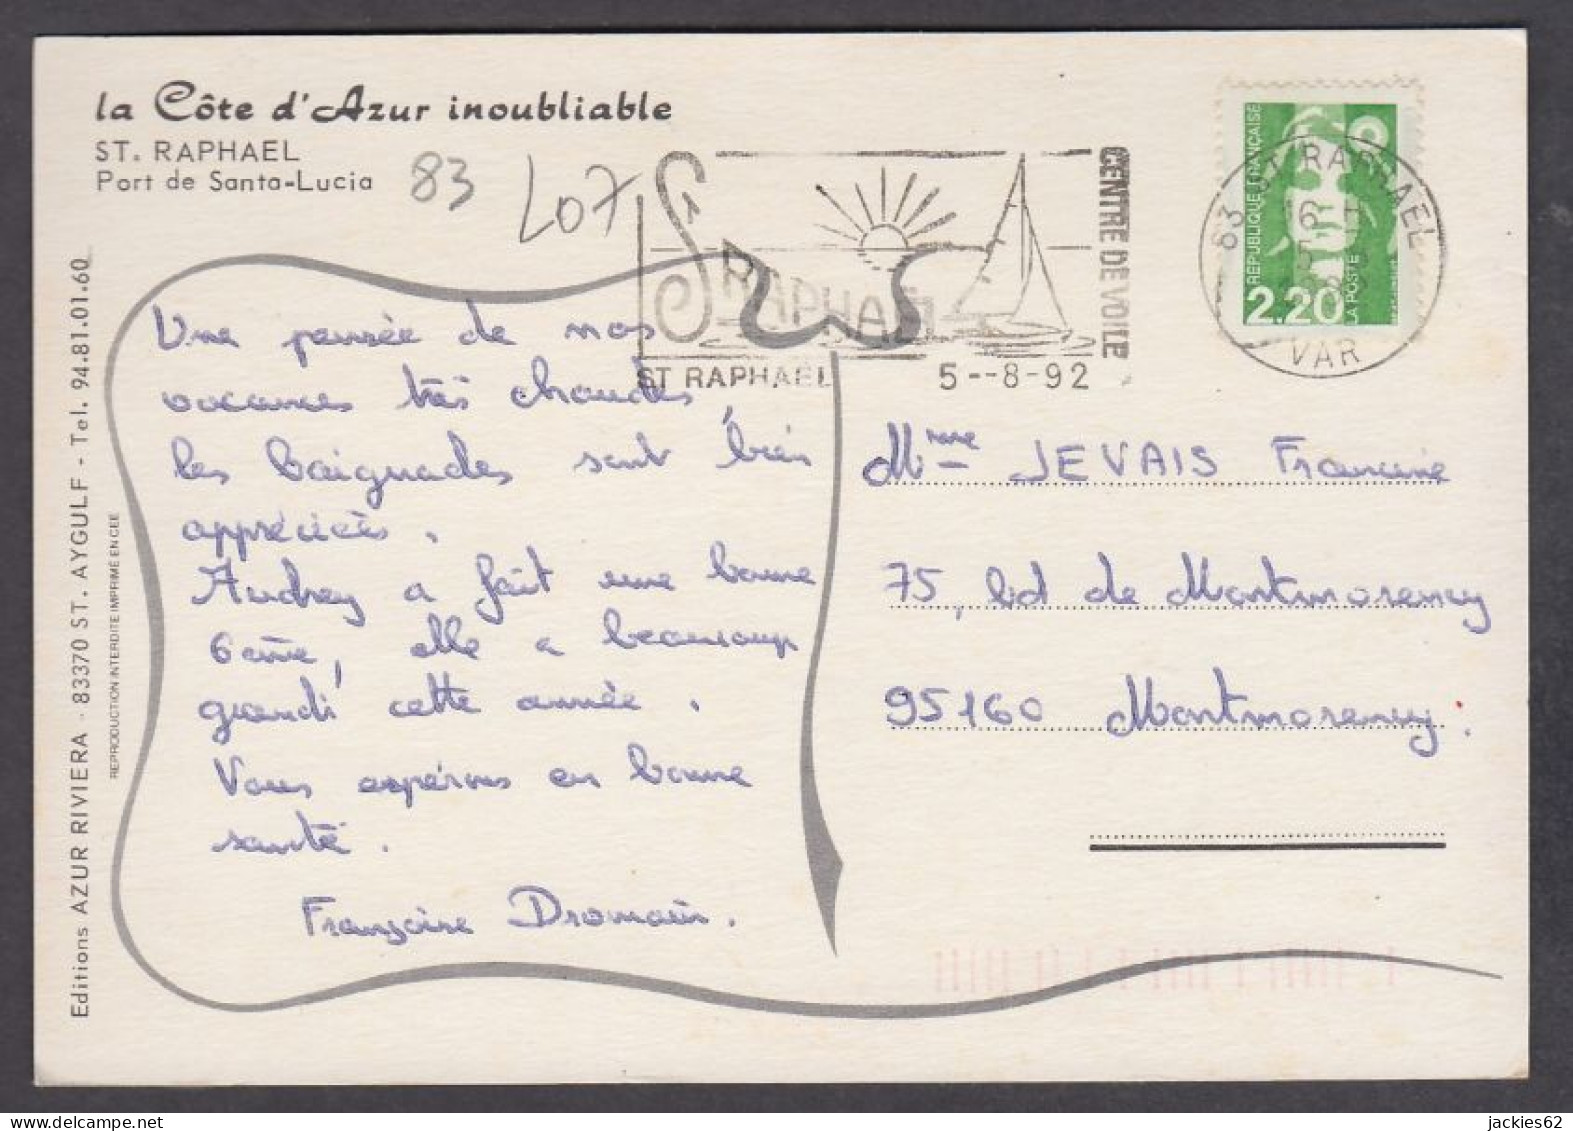 la Côte d'Azur inoubliable
ST. RAPHAEL
Port de Santa-Lucia
83
L07
St RAPHAEL
CENTRE DE VOILE
ST RAPHAEL 5--8-92
83 ST RAPHAEL
16 H
VAR
RÉPUBLIQUE FRANÇAISE
2.20 LA POSTE
Une pensée de nos
vacances très chaudes
les baignades sont bien
appréciées.
Audrey a fait une bonne
6ème, elle a beaucoup
grandi cette année.
Vous espérons en bonne
santé.
Françoise Dromain.
Mme JEVAIS Francine
75, bd de Montmorency
95160 Montmorency.
Editions AZUR RIVIERA - 83370 ST. AYGULF - Tel. 94.81.01.60
REPRODUCTION INTERDITE IMPRIMÉ EN CEE
jackies62